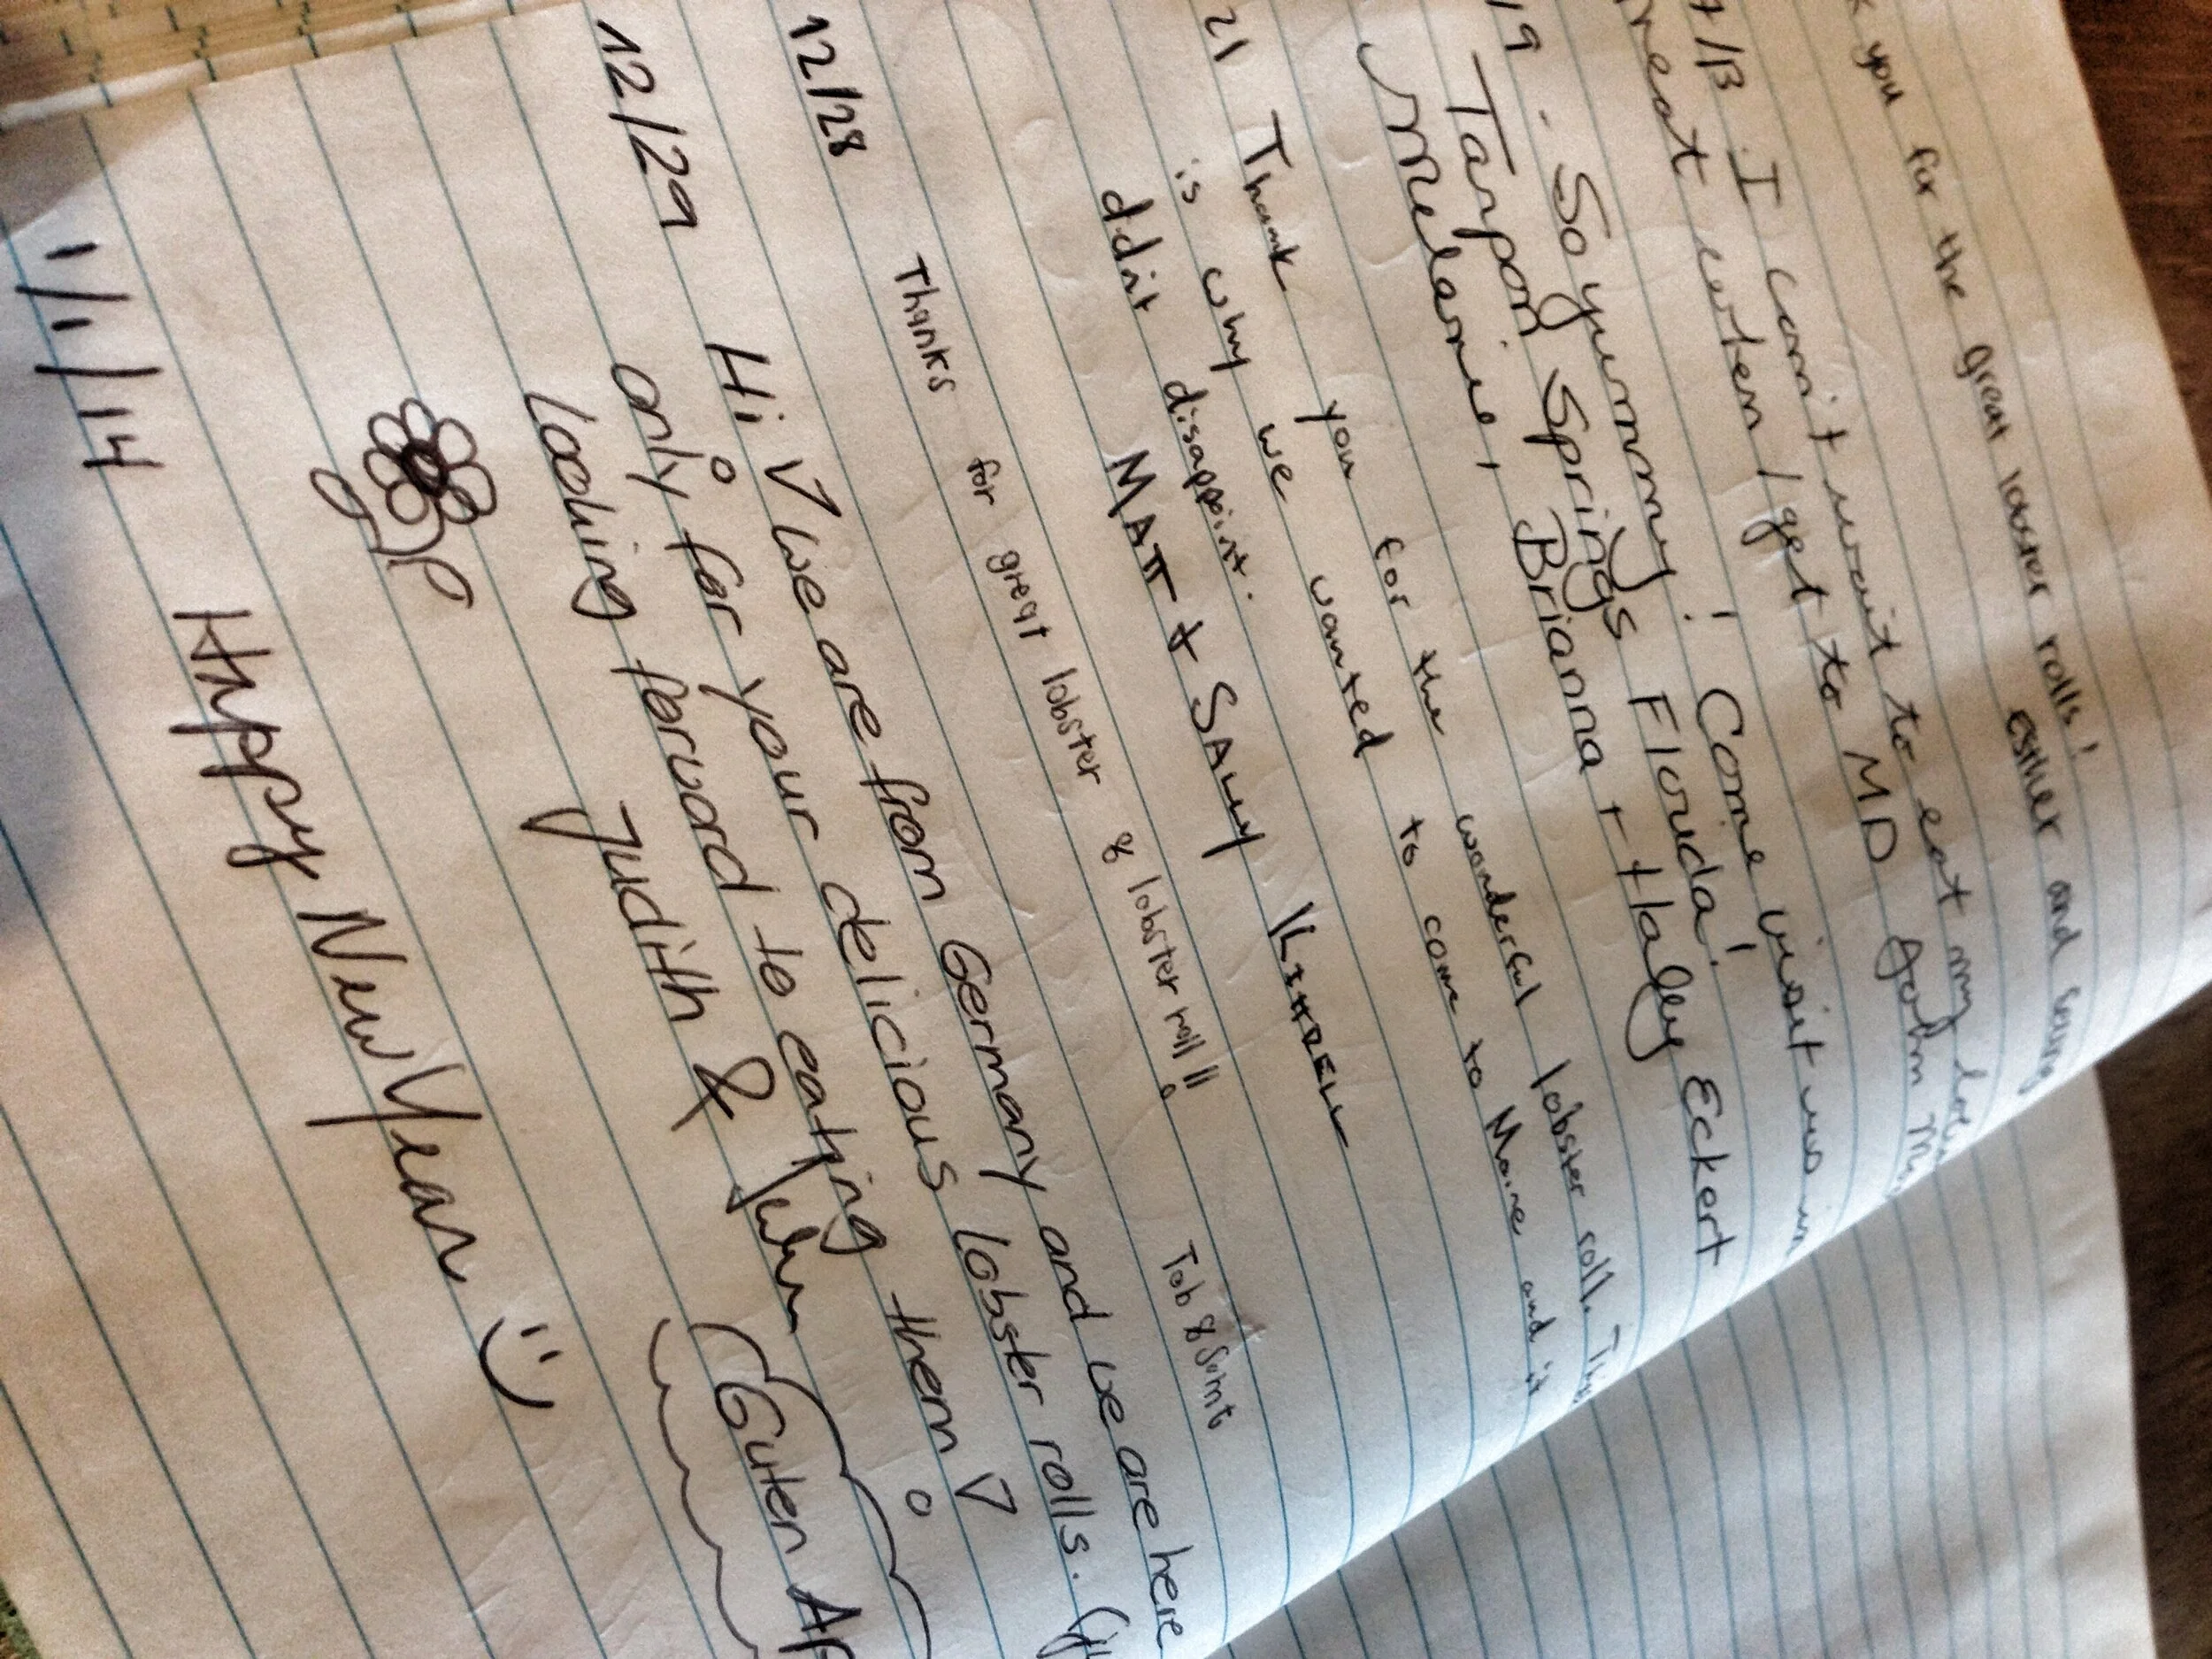 you for the great lobster rolls!
Esther and
I can't wait to eat my
when I get to MD John
19. So yummy! Come visit us in
Tarpon Springs Florida!
Melanie, Brianna + Haley Eckert
21 Thank you for the wonderful lobster roll. This
is why we wanted to come to Maine and it
ddint disappoint.
MATT + SALLY
12/28 Thanks for great lobster & lobster roll!! Tob &
12/29 Hi! We are from Germany and we are here
only for your delicious lobster rolls.
looking forward to eating them!
Judith &
Guten Ap
1/1/14 Happy New Year :)